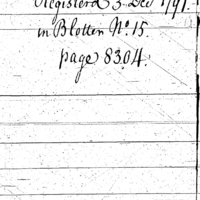 Registerd 3 Decr 1791.
in Blotter No. 15.
page 8304.